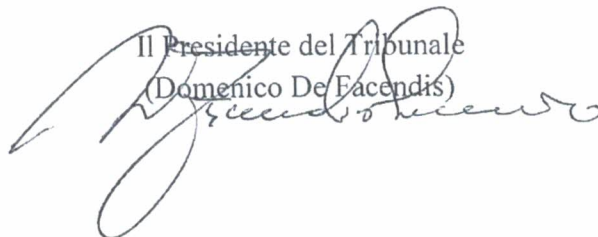 Il Presidente del Tribunale
(Domenico De Facendis)